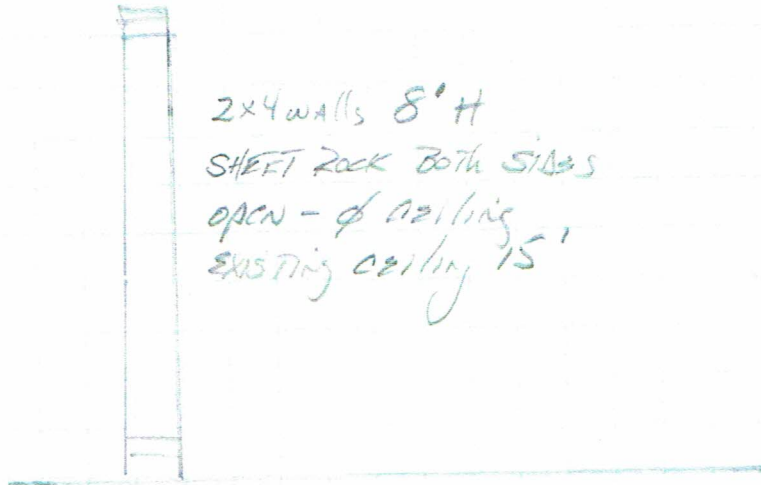 2x4 walls 8' H
SHEET ROCK BOTH SIDES
OPEN - Ø CEILING
EXISTING CEILING 15'